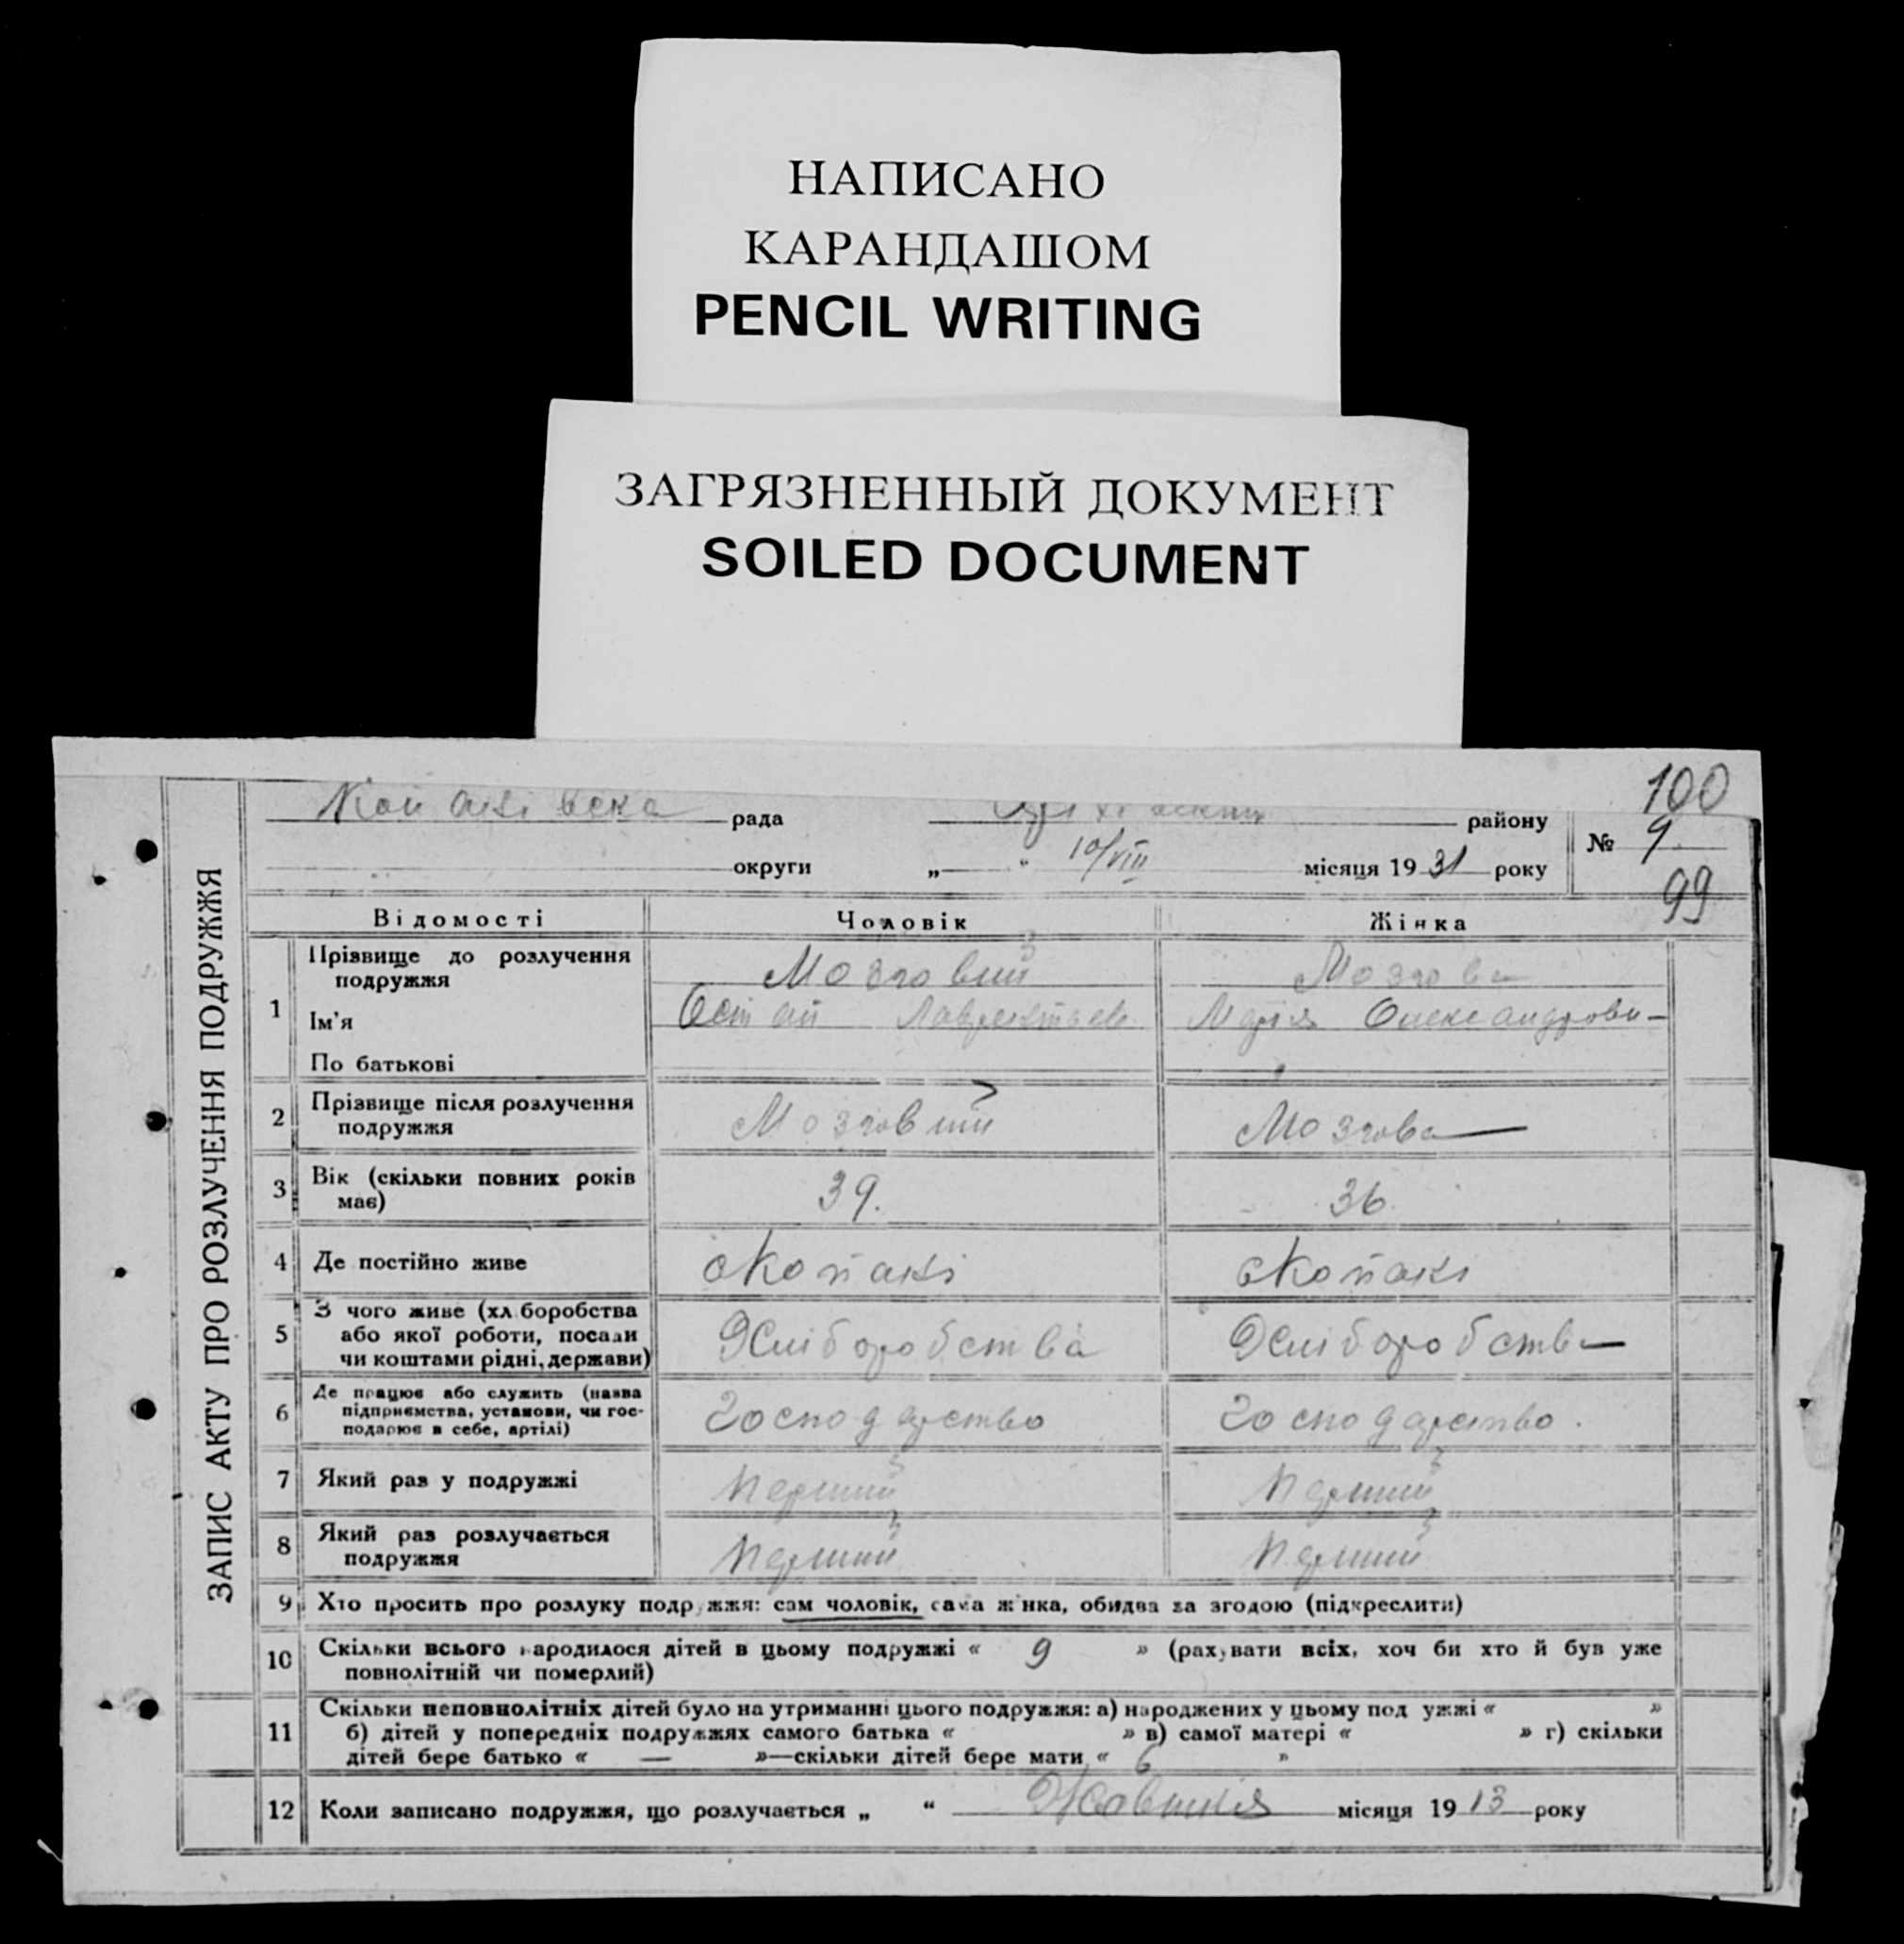 НАПИСАНО
КАРАНДАШОМ
PENCIL WRITING
ЗАГРЯЗНЕННЫЙ ДОКУМЕНТ
SOILED DOCUMENT
100
рада району
№ 9
округи „ “ 10/VIII місяця 1931 року
99
ЗАПИС АКТУ ПРО РОЗЛУЧЕННЯ ПОДРУЖЖЯ
Відомості Чоловік Жінка
1 Прізвище до розлучення подружжя Мозговий Мозгова
Ім'я Остап Лаврентьев. Марія Олександровн
По батькові
2 Прізвище після розлучення подружжя Мозговий Мозгова
3 Вік (скільки повних років має) 39. 36
4 Де постійно живе Копані Копані
5 З чого живе (хліборобства або якої роботи, посади чи коштами рідні, держави) Хліборобства Хліборобства
6 Де працює або служить (назва підприємства, установи, чи господарює в себе, артілі) господарство господарство.
7 Який раз у подружжі перший перший
8 Який раз розлучається подружжя перший перший
9 Хто просить про розлуку подружжя: сам чоловік, сама жінка, обидва за згодою (підкреслити)
10 Скільки всього народилося дітей в цьому подружжі « 9 » (рахувати всіх, хоч би хто й був уже
повнолітній чи померлий)
11 Скільки неповнолітніх дітей було на утриманні цього подружжя: а) народжених у цьому подружжі « »
б) дітей у попередніх подружжях самого батька « » в) самої матері « » г) скільки
дітей бере батько « — »—скільки дітей бере мати « 6 »
12 Коли записано подружжя, що розлучається „ “ Жовтня місяця 1913 року